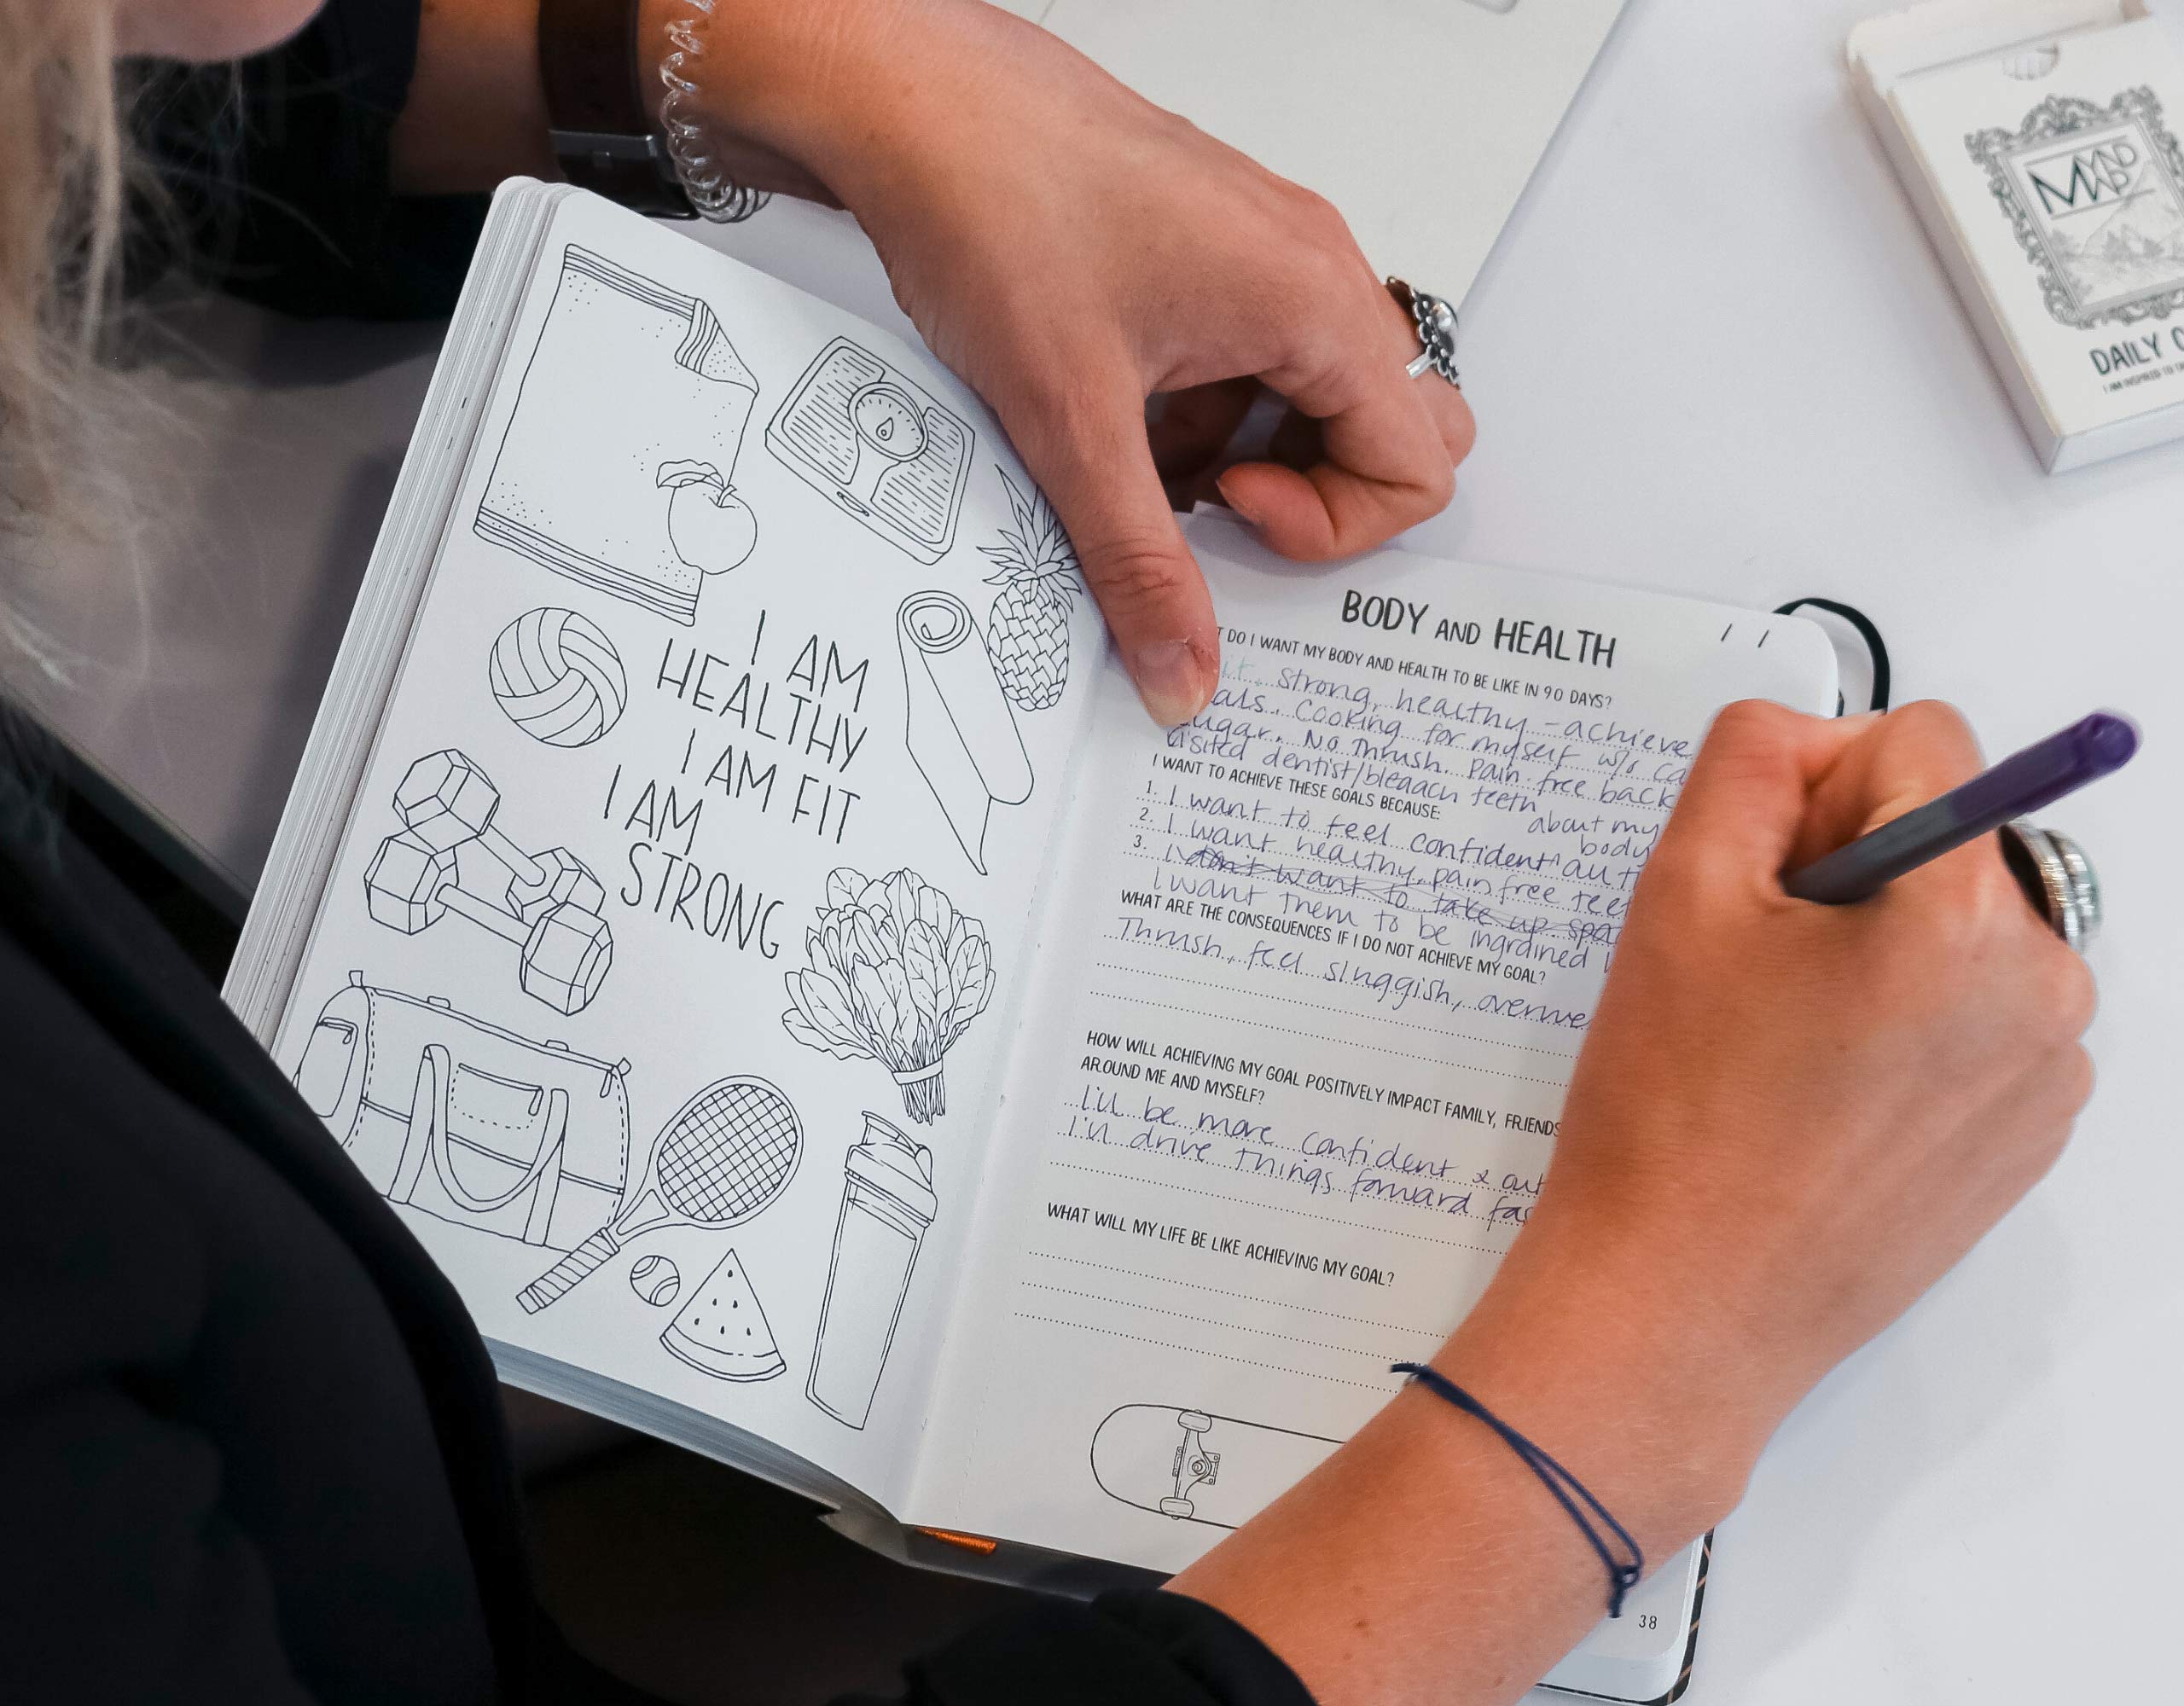 I AM
HEALTHY
I AM FIT
I AM
STRONG
BODY AND HEALTH
/ /
DO I WANT MY BODY AND HEALTH TO BE LIKE IN 90 DAYS?
strong, healthy - achieve
Cooking for myself w/o
sugar. No Thrush. Pain free back
visited dentist/bleach teeth
I WANT TO ACHIEVE THESE GOALS BECAUSE:
about my
body
1. I want to feel confident
2. I want healthy, pain free
3. I don't want to take up
I want them to be ingrained
WHAT ARE THE CONSEQUENCES IF I DO NOT ACHIEVE MY GOAL?
Thrush, feel sluggish,
HOW WILL ACHIEVING MY GOAL POSITIVELY IMPACT FAMILY, FRIENDS
AROUND ME AND MYSELF?
I'll be more confident &
I'll drive things forward
WHAT WILL MY LIFE BE LIKE ACHIEVING MY GOAL?
38
DAILY